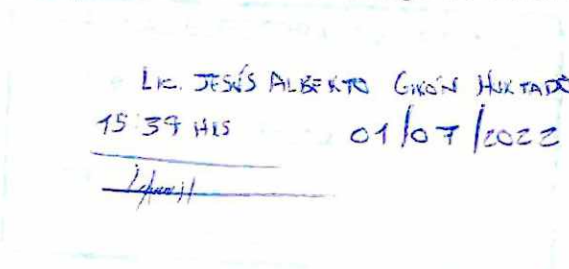 Lic. JESÚS ALBERTO GIRÓN HURTADO
15:39 HRS 01/07/2022